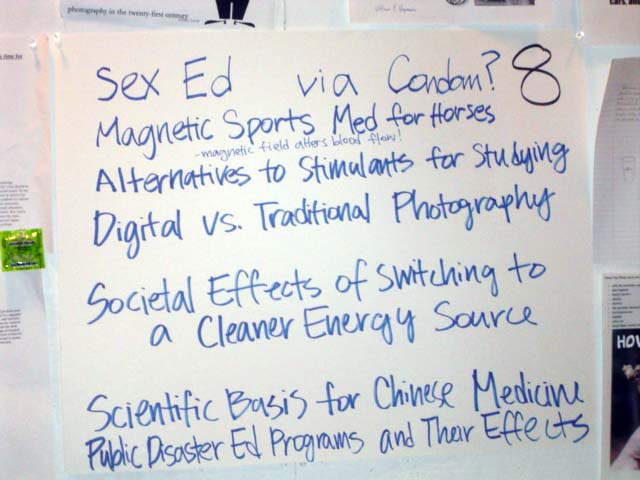 photography in the twenty-first century
Sex Ed via Condom? 8
Magnetic Sports Med for Horses
-magnetic field alters blood flow!
Alternatives to Stimulants for Studying
Digital vs. Traditional Photography
Societal Effects of Switching to
a Cleaner Energy Source
Scientific Basis for Chinese Medicine
Public Disaster Ed Programs and Their Effects
HOW